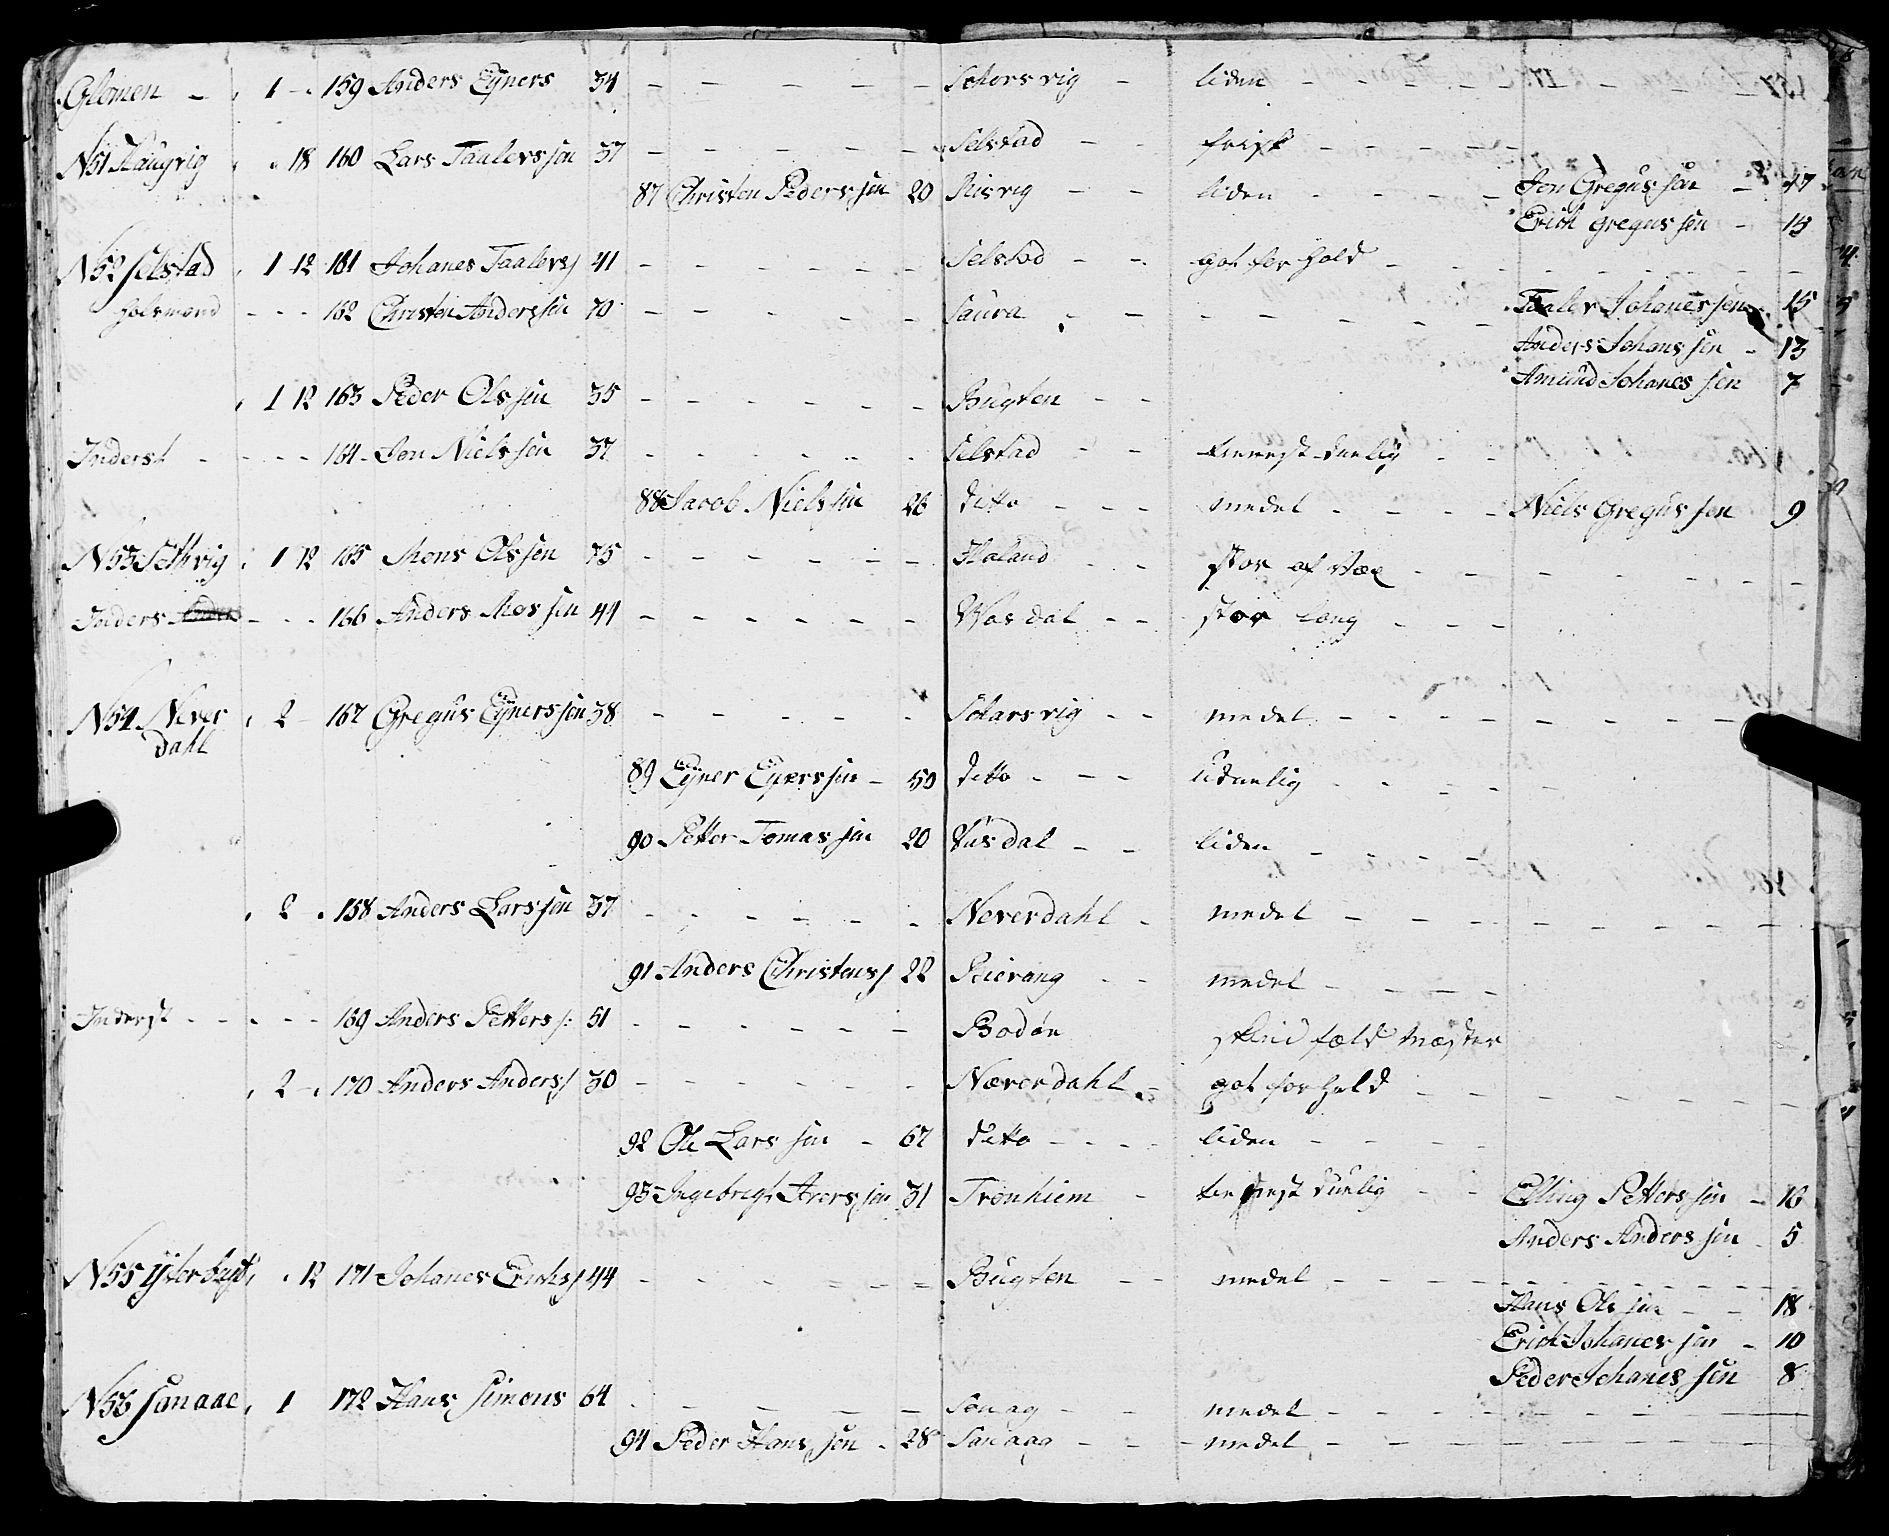 Glomen - 1 - 159 Anders Eÿners 34 - - - - - - Schorsvig - liden - - - - -
N51 Haugvig 18 160 Lars Taalerssøn 37 - - - - - - Selstad - - frisk - - - - -
87 Christen Pederssøn 20 Risvig - - liden - - - - Jon Gregussøn - 17
Erich Gregussøn - 13
N52 Selstad 1 12 161 Johanes Taalers 41 - - - - - - Selstad - - got forhold - - - - - - -
Holsmand - - - 162 Christen Anderssøn 70 - - - - - - Saura - - - - - - - Taaler Johanessøn 15
Anders Johanssøn - 13
Amund Johanessøn 7
1 12 163 Peder Olssøn 35 - - - - - - Bugten - -
Inderst - - - - 164 Jon Nielssøn 37 - - - - - - Selstad - - tienest duelig - -
88 Jacob Nielssøn 26 ditto - - - medel - - - - Niels Gregussøn 9
N53 Sethvig 1 12 165 Mons Olssøn 75 - - - - - - Haland - - stor af Væx - - - - - - -
Inders - - - 166 Anders Mossøn 44 - - - - - - Wasdal - - stor lang - - -
N54 Never
dahl 2 - 167 Gregus Eÿnerssøn 38 - - - - - - Scharsvig - - medel - - - - - - - -
89 Eÿner Eÿerssøn - 50 ditto - - - Uduelig - - - - -
90 Petter Tomassøn 20 Vasdal - - liden - - - -
2 - 168 Anders Larssøn 37 - - - - - - Neverdahl - medel - - - - - - - -
91 Anders Christens 22 - - medel - - - -
Inderst - - - - 169 Anders Petters 51 - - - - - - Bodøn skind fæld mæster
2 - 170 Anders Anders 30 - - - - - - Næverdahl - got forhold - - - - - - -
92 Ole Larssøn - 67 ditto - - - liden - - - -
93 Ingebregt Arerssøn 31 Tronhiem - tienest duelig - - Elling Petterssøn - 10
Anders Anderssøn - 5
N55 Ÿterbugt 12 171 Johanes Erichs 44 - - - - - - Bugten - - medel - - - - - - - -
Hans Olssøn - - 18
Erich Johanessøn - 10
Peder Johanessøn 8
N56 Sønaae 1 172 Hans Simons 64 - - - - - - Sonag - - medel - - - - - - -
94 Peder Hanssøn - 28 Sanaag - - - medel - - - - - - -